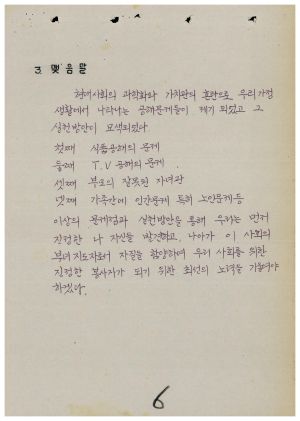 3. 맺음말
현대사회의 과학화와 가치관의 혼란으로 우리 가정
생활에서 나타나는 공해문제들이 제기 되었고 그
실천방안이 모색되었다.
첫째 식품공해의 문제
둘째 T.V 공해의 문제
셋째 부모의 잘못된 자녀관
넷째 가족간에 인간문제 특히 노인문제등
이상의 문제점과 실천방안을 통해 우리는 먼저
진정한 나 자신을 발견하고, 나아가 이 사회의
부녀지도자로서 자질을 함양하며 우리 사회를 위한
진정한 봉사자가 되기 위한 최선의 노력을 기울여야
하겠다.
6